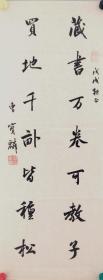 藏書万卷可教子
戊戌
買地千畝皆種松
曹寶麟